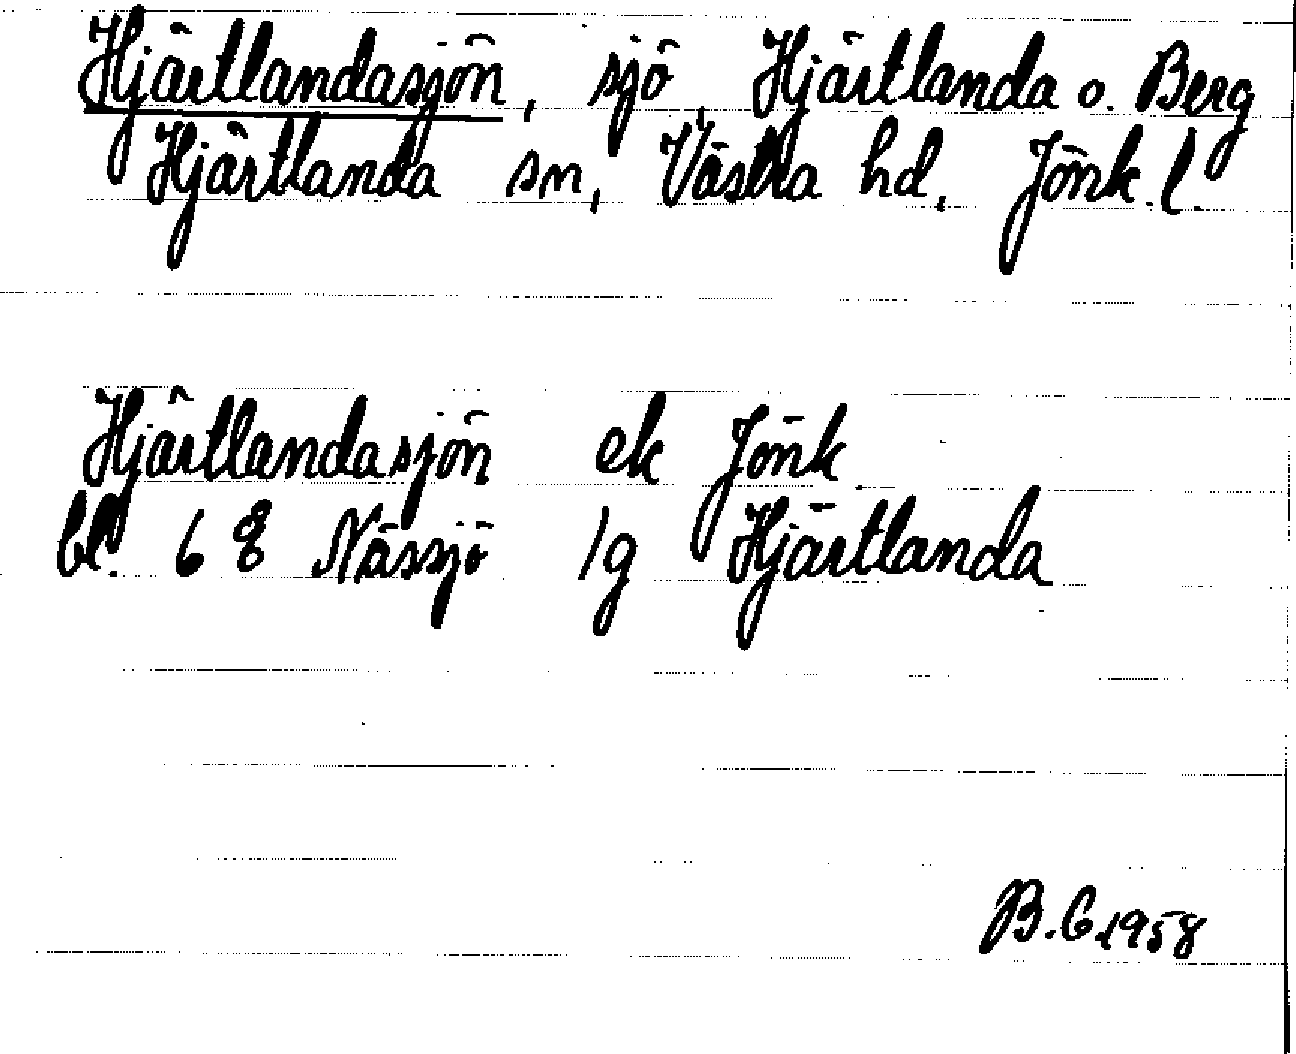 Hjärtlandasjön, sjö, Hjärtlanda o. Berg
Hjärtlanda sn, Västra hd, Jönk. l.
Hjärtlandasjön ek Jönk
bl. 68 Nässjö lg Hjärtlanda
B.G. 1958